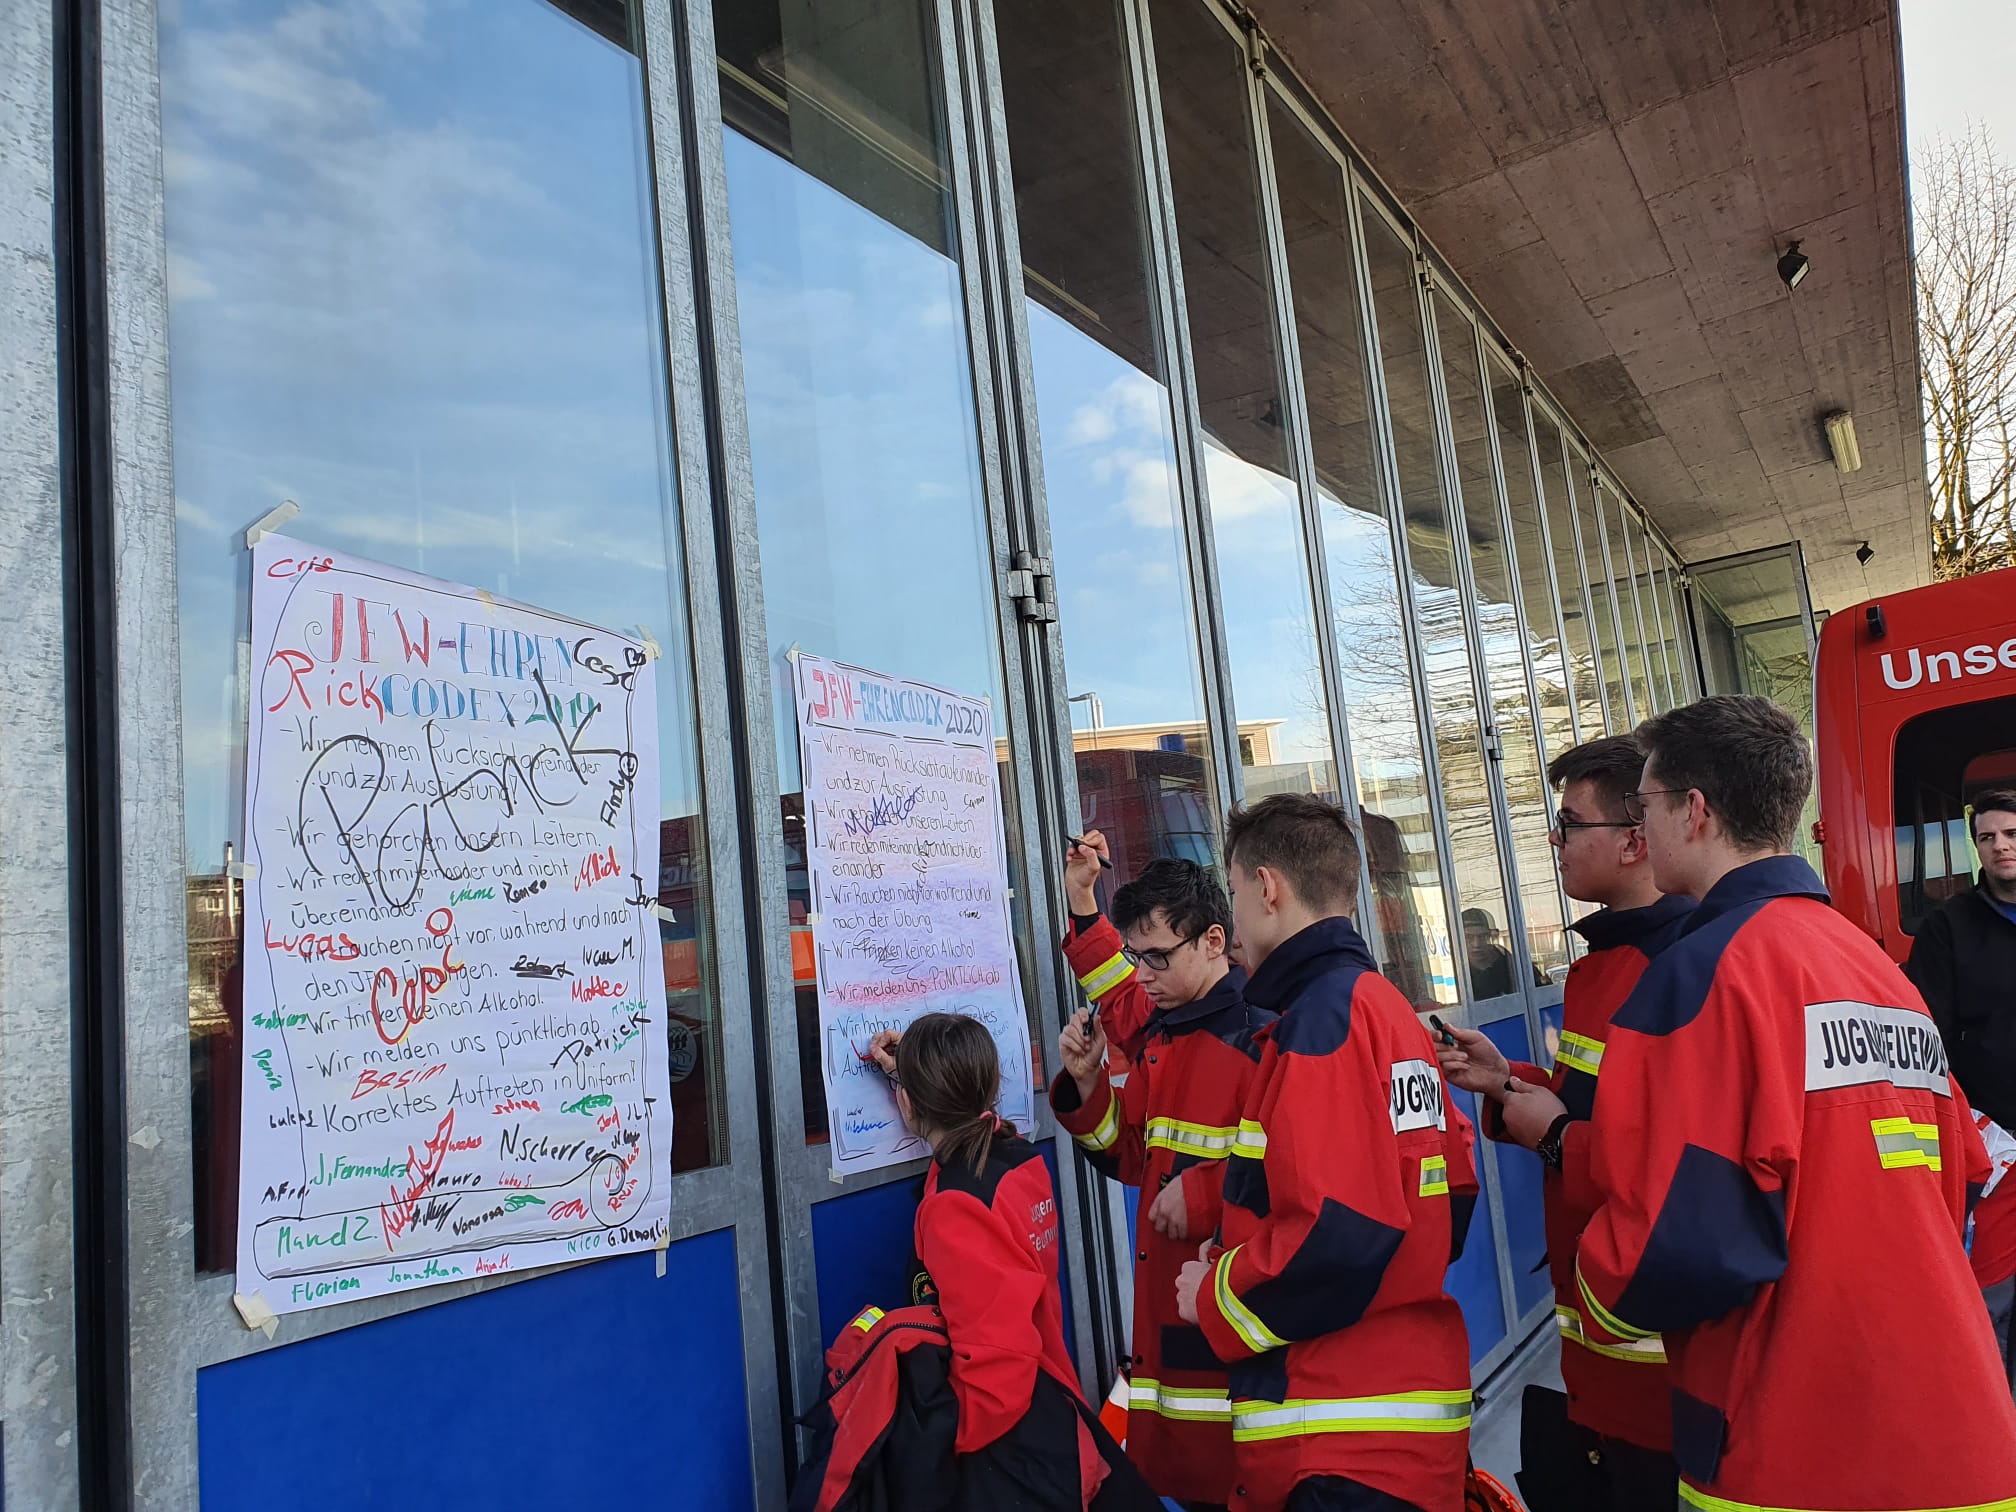 Cris
JFW-EHREN
CODEX 2019
Rick
- Wir nehmen Rücksicht aufeinander
und zur Ausrüstung!
Patrick
Andy
- Wir gehorchen unsern Leitern.
- Wir reden miteinander und nicht
übereinander.
Romeo
M. Rich
Jan
Lucas
- Wir rauchen nicht vor, während und nach
den JFW-Übungen.
Robert
Ivan M.
Matteo
Fabian
- Wir trinken keinen Alkohol.
- Wir melden uns pünktlich ab.
Patrick
Denis
Besim
- Korrektes Auftreten in Uniform!
Lukas
N. Scherrer
J. Fernandez
Mauro
Lukas S.
Vanessa
Manuel Z.
NICO
G. Demonlis
Florian
Jonathan
Anja H.
JFW-EHRENCODEX 2020
- Wir nehmen Rücksicht aufeinander
und zur Ausrüstung
- Wir gehorchen unseren Leitern
- Wir reden miteinander und nicht über-
einander
- Wir Rauchen nicht vor während und
nach der Übung
- Wir trinken keinen Alkohol
- Wir melden uns PÜNKTLICH ab
- Wir haben
Auftre
Unse
JUGENDFEUERW
UGEN
ugen
Feuerw